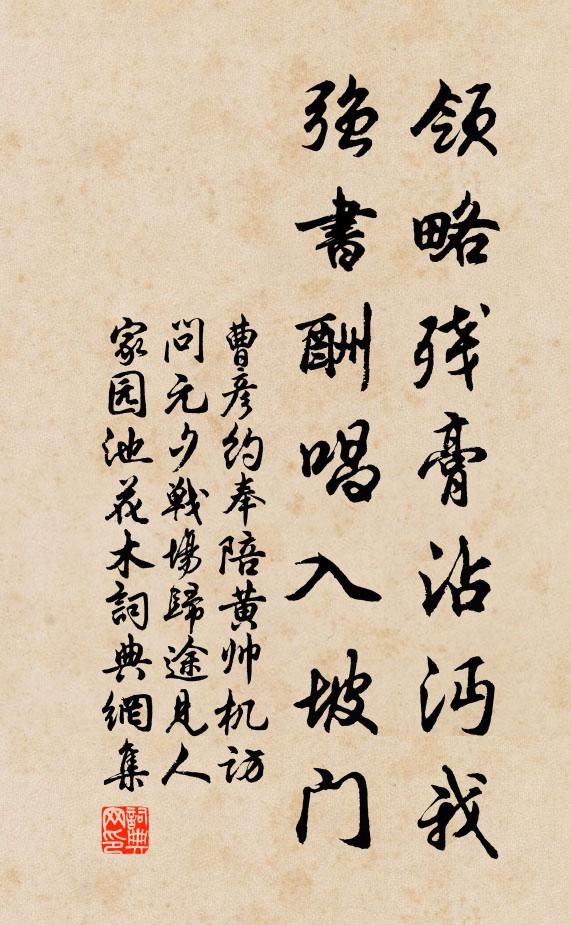 领略残膏沾沔我
强书酬唱入坡门
曹彦约奉陪黄帅机访
问元夕戰場歸途見人
家园池花木詞典網集
詞典
网印